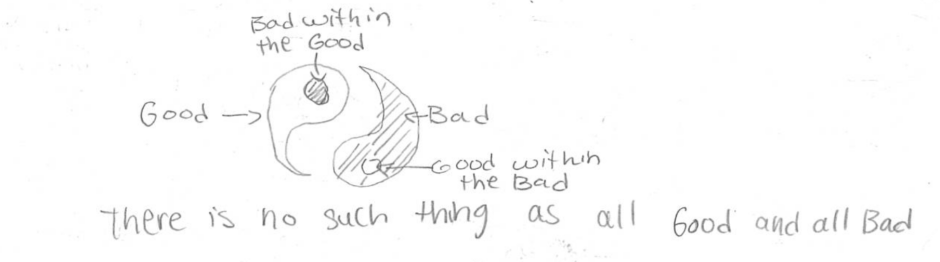 Bad within
the Good
Good
Bad
Good within
the Bad
there is no such thing as all Good and all Bad